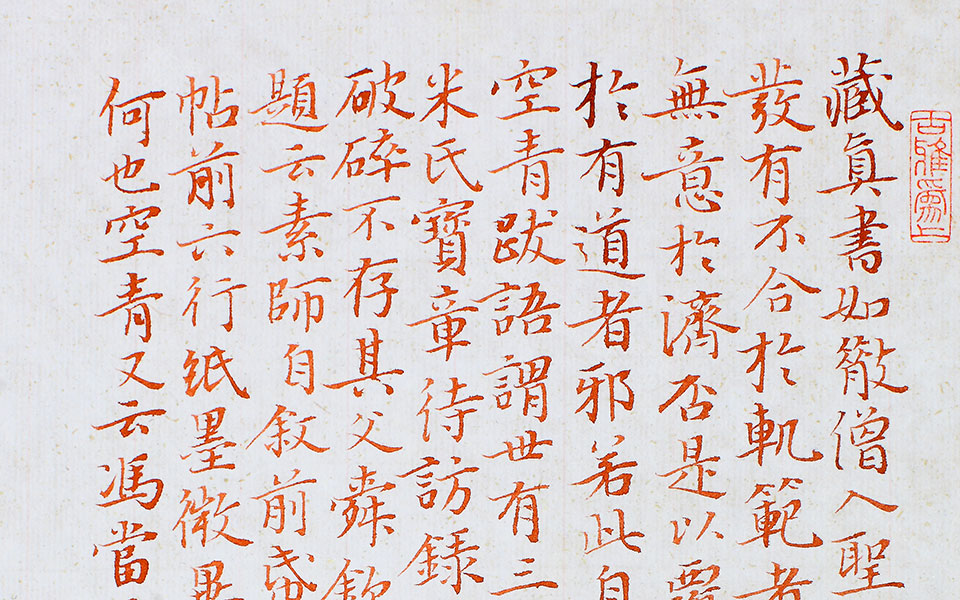 古雅為上
藏眞書如散僧入聖
發有不合於軌範者
無意於濟否是以
於有道者邪若此自
空青跋語謂世有三
米氏寶章待訪錄
破碎不存其父舜欽
題云素師自敘前帋
帖前六行紙墨微
何也空青又云馮當